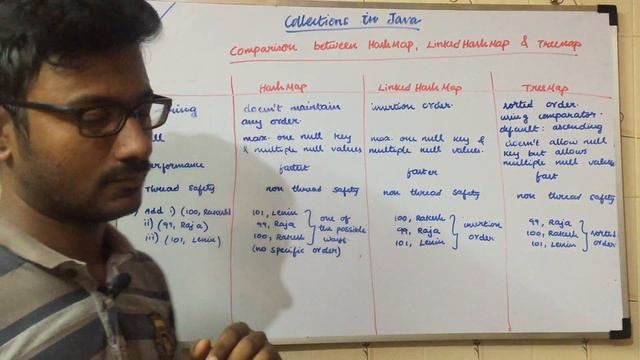 Collections in Java
Comparison between HashMap, LinkedHashMap & TreeMap
HashMap
LinkedHashMap
TreeMap
doesn't maintain
any order.
insertion order.
sorted order.
using comparator.
default: ascending
max. one null key
& multiple null values
max. one null key &
multiple null values.
doesn't allow null
key but allows
multiple null values
fastest
faster
fast
Thread Safety
non thread safety
non thread safety
non thread safety
Add i) (100, Rakesh)
ii) (99, Raja)
iii) (101, Lenin)
101, Lenin
99, Raja
100, Rakesh
(no specific order)
one of
the possible
ways.
100, Rakesh
99, Raja
101, Lenin
insertion
order
99, Raja
100, Rakesh
101, Lenin
sorted
order